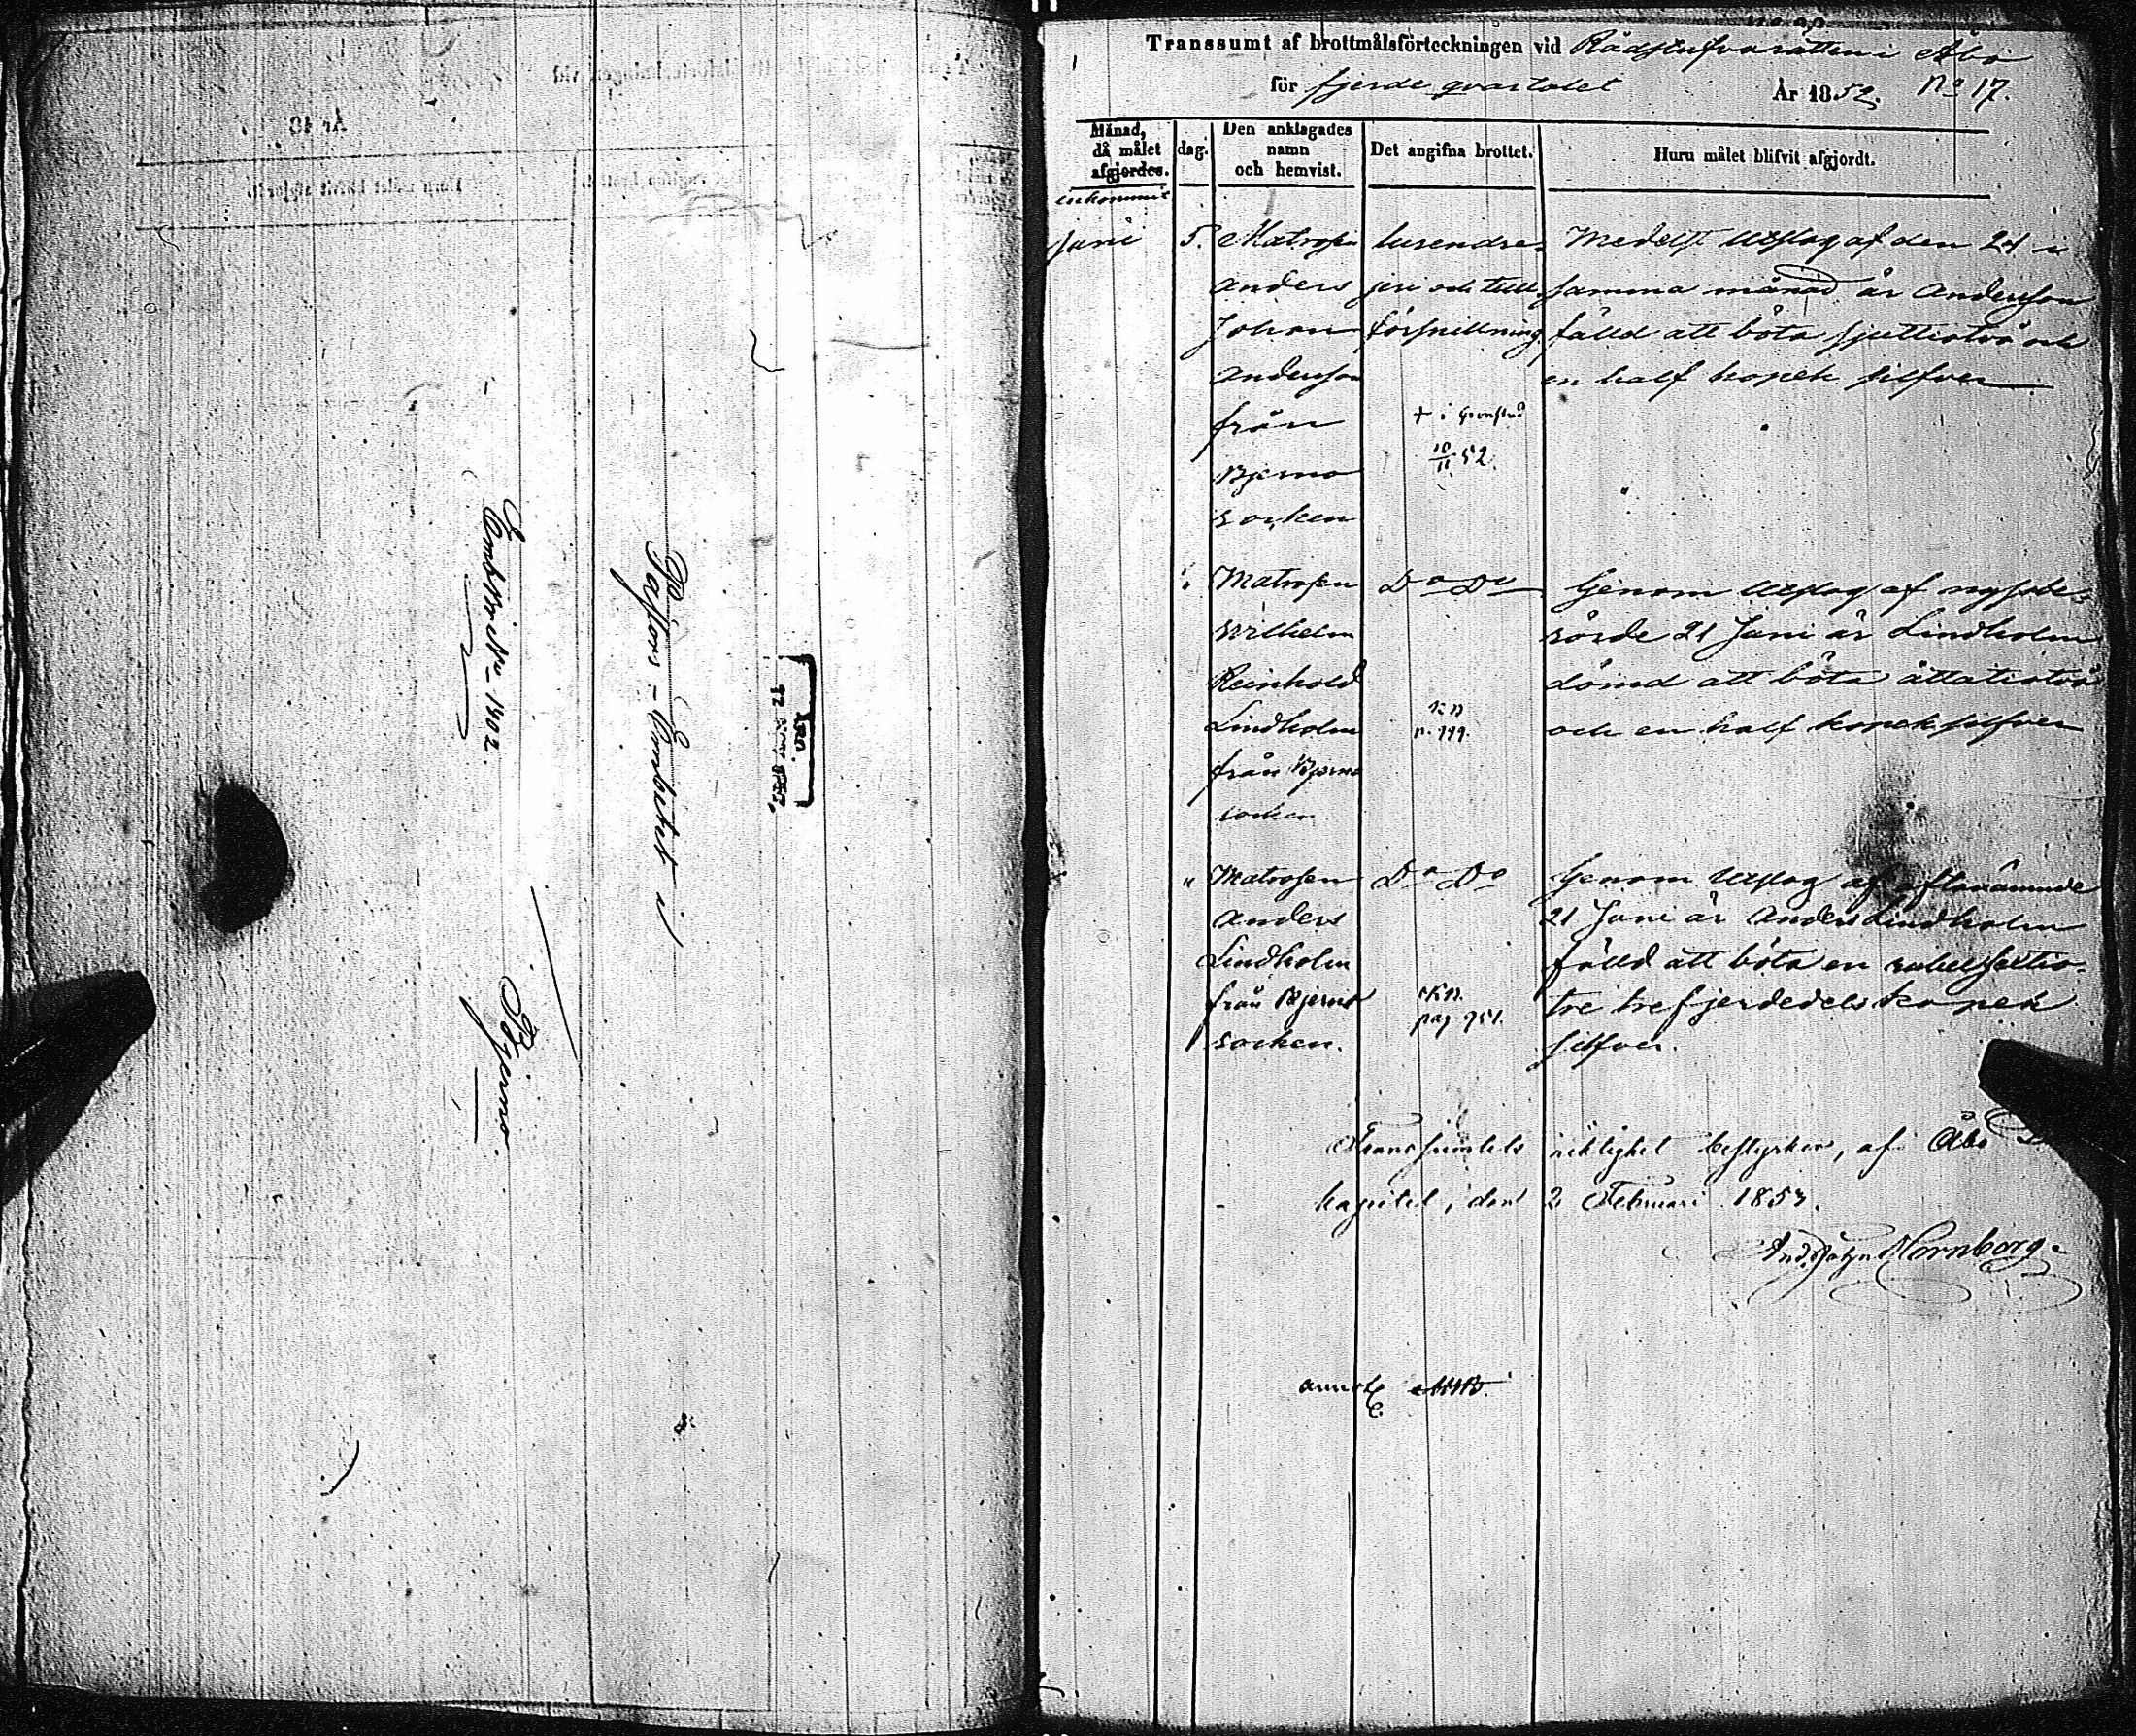 Embetswäg 1402.
Pastors-Embetet i
Bjerno.
ÅBO.
Transsumt af brottmålsförteckningen vid Rådstufvurätten i Åbo
för fjerde qvartalet År 1852. No 17.
Månad, då målet afgjordes. dag. Den anklagades namn och hemvist. Det angifna brottet. Huru målet blifvit afgjordt.
inkommit
Juni 5. Matrosen lurendre- Medelst Utslag af den 21 i
Anders jeri och tull samma månad är Andersson
Johan försnillning fälld att böta sjuttiotvå och
Andersson en half kopek silfver.
från + i Cronstad
Bjerno 10/11 52.
socken
" Matrosen Do Do Genom Utslag af nysbe-
Wilhelm rörde 21 Juni är Lindholm
Reinhold dömd att böta åttatiotvå
Lindholm p. 199. och en half kopek silfver
från Bjerno
socken
" Matrosen Do Do Genom Utslag af oftanämnde
Anders 21 Juni är Anders Lindholm
Lindholm fälld att böta en rubel sextio-
från Bjerno pag 751. tre trefjerdedels kopek
socken. silfver.
Transsumtets riktighet bestyrker, af Åbo
kapitel, den 2 Februari 1853.
And. Johan Hornborg.